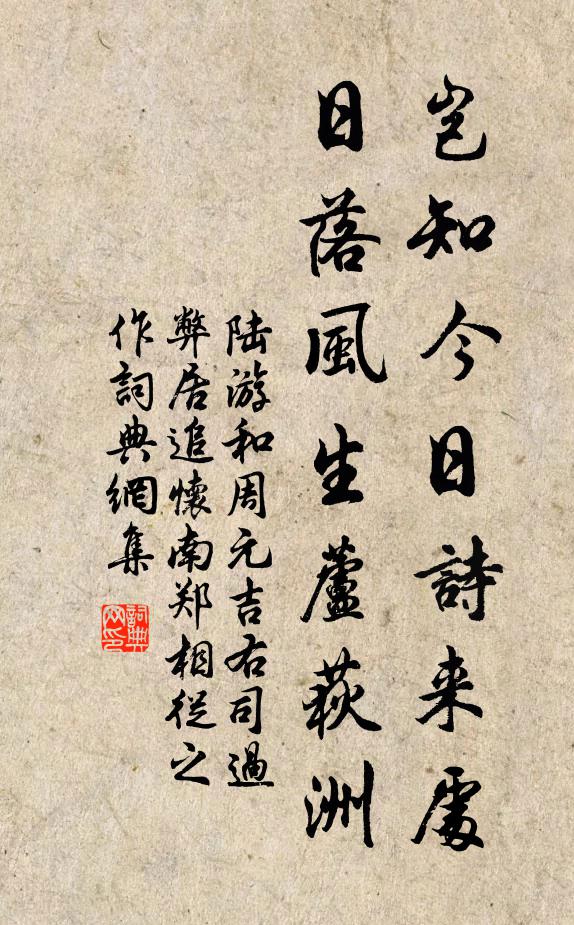 岂知今日詩来處
日落風生蘆荻洲
陆游和周元吉右司過
弊居追懷南郑相従之
作詞典網集
詞典网印